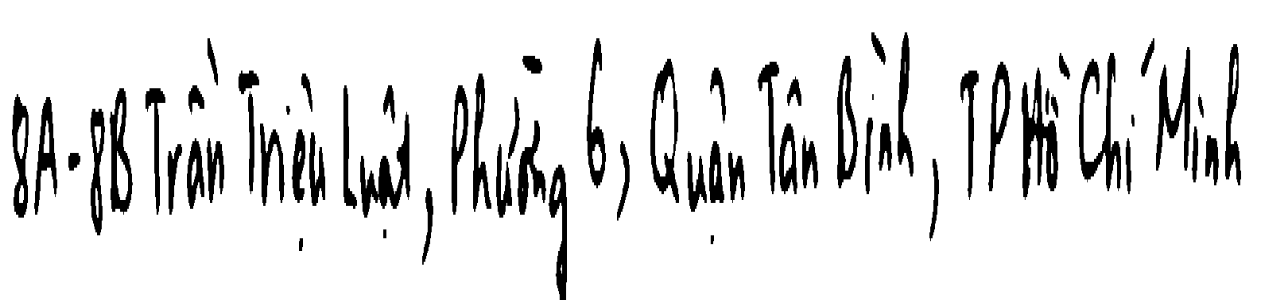 8A-8B Trần Triệu Luật, Phường 6, Quận Tân Bình, TP Hồ Chí Minh